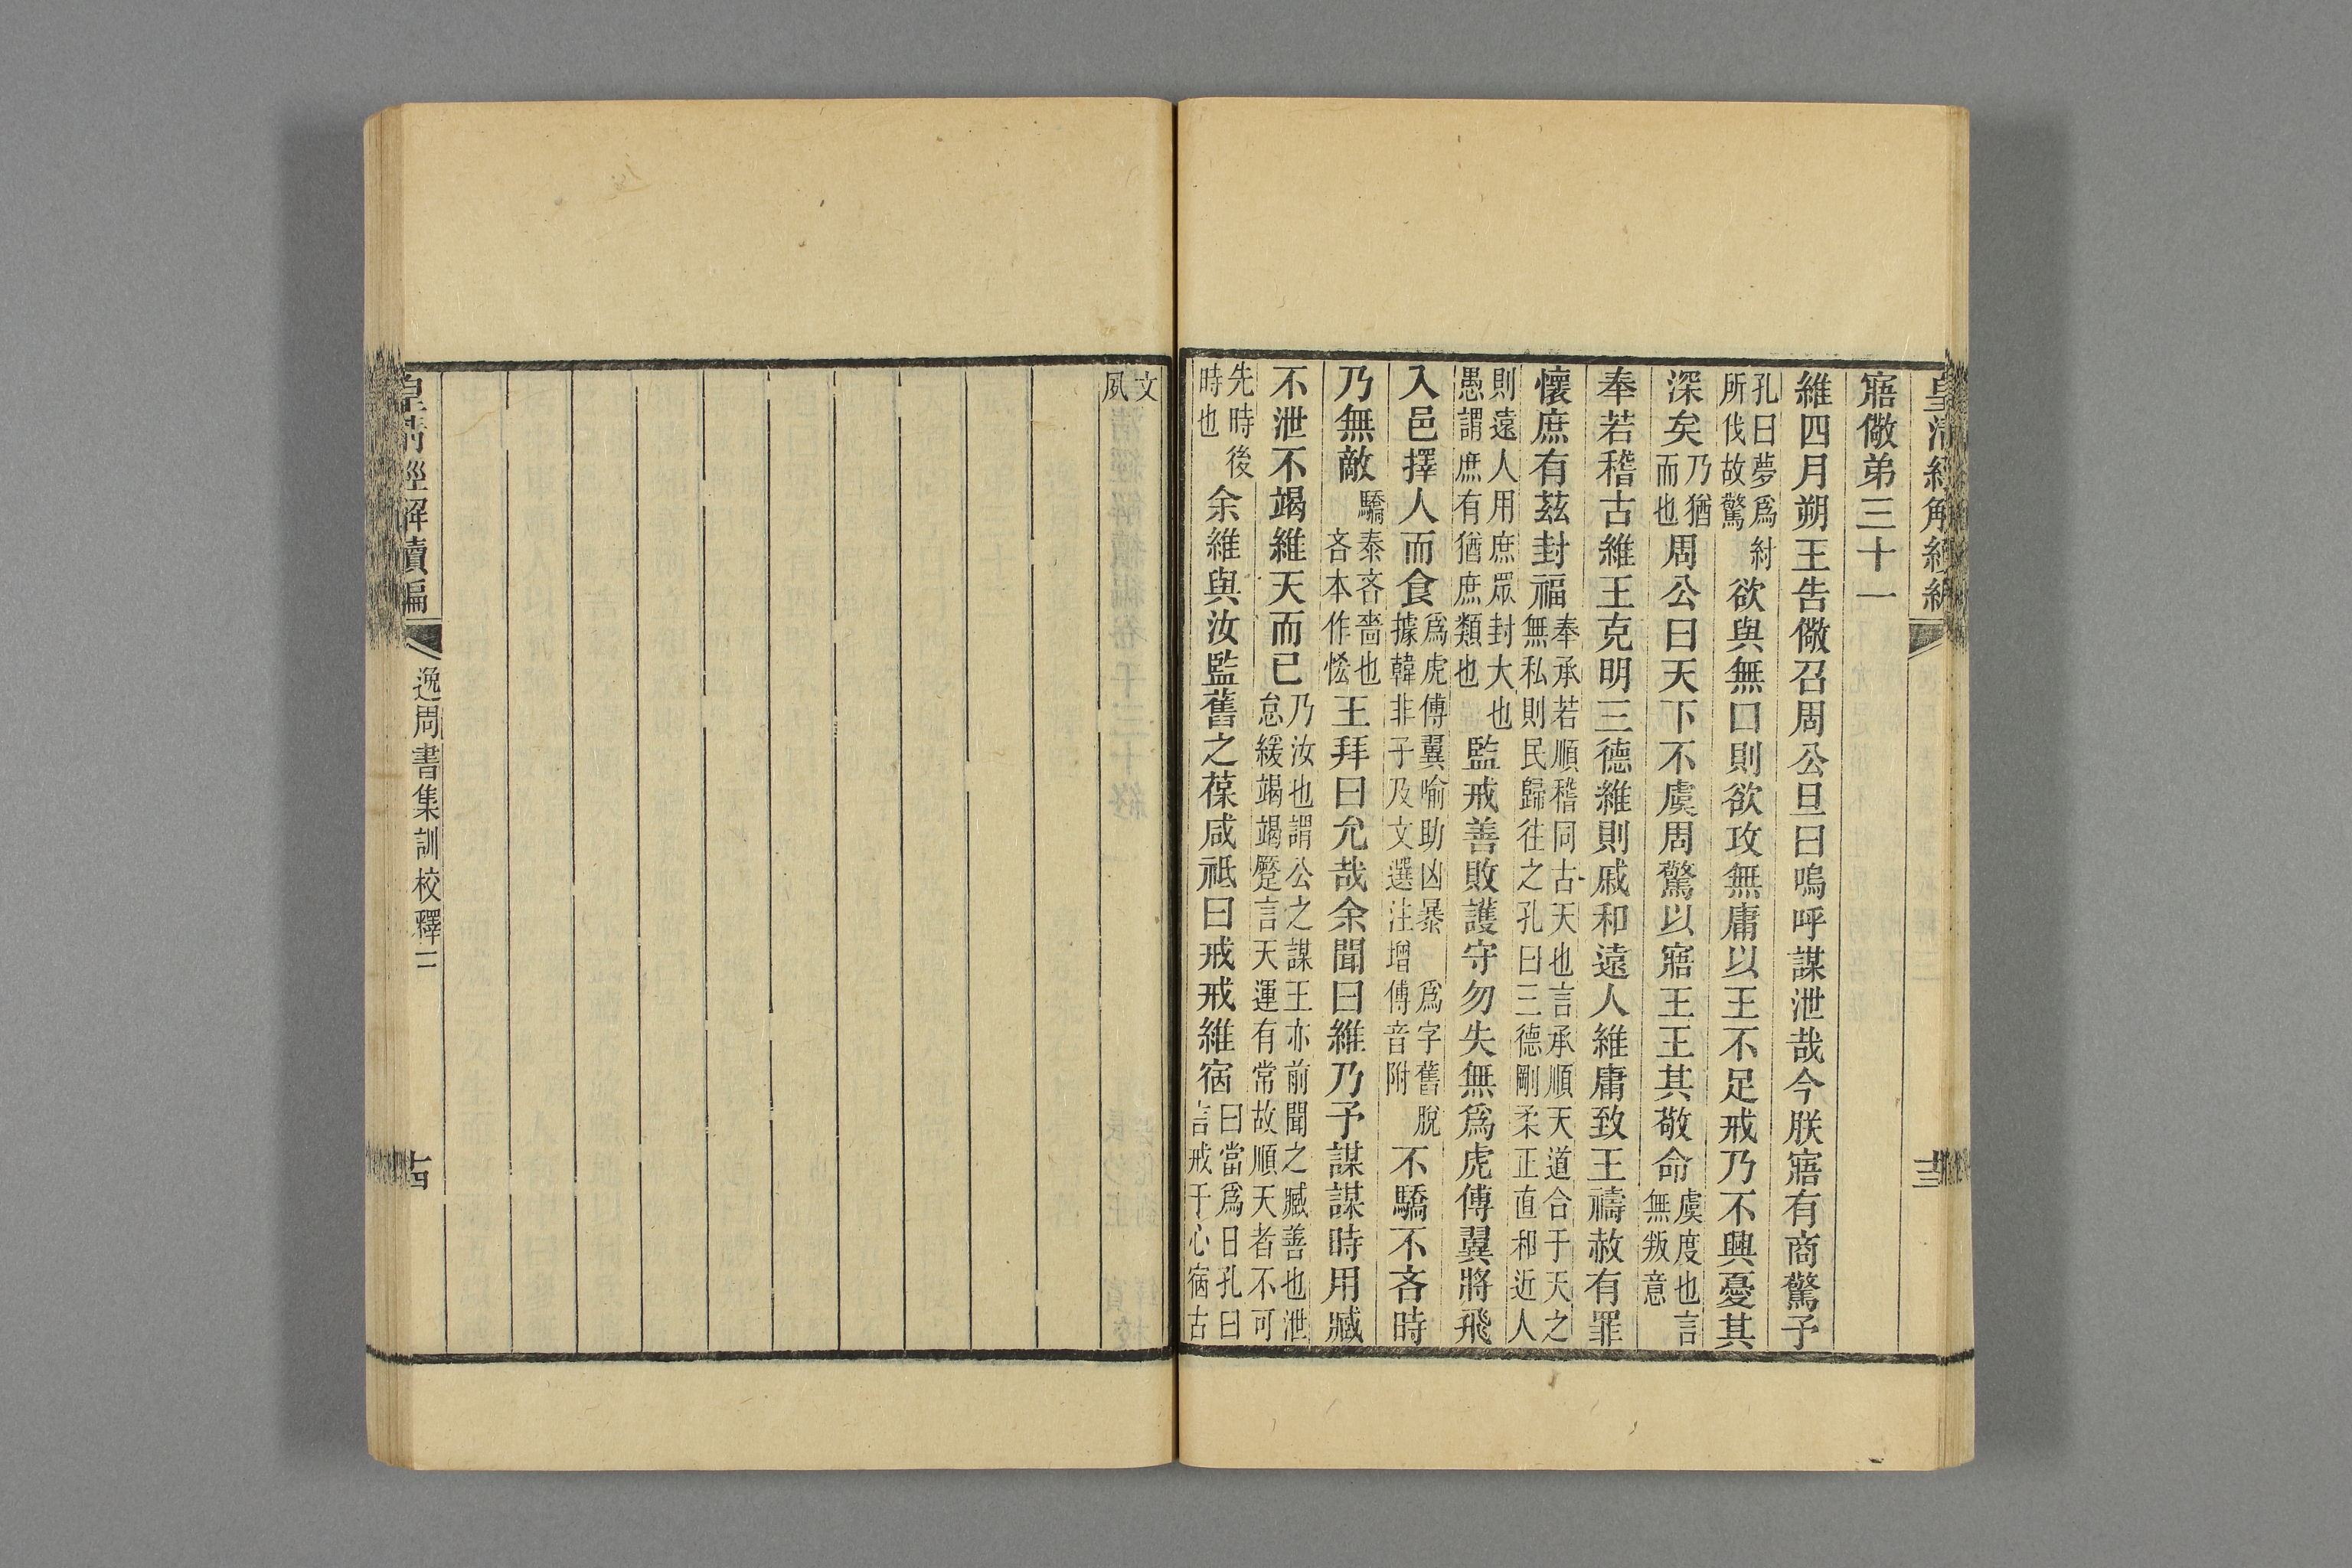 皇清經解續編
十三
寤儆弟三十一
維四月朔王告儆召周公旦曰嗚呼謀泄哉今朕寤有商驚予
孔曰夢爲紂所伐故驚欲與無口則欲攻無庸以王不足戒乃不興憂其
深矣乃猶而也周公曰天下不虞周驚以寤王王其敬命虞度也言無叛意
奉若稽古維王克明三德維則戚和遠人維庸致王禱赦有罪
懷庶有茲封福奉承若順稽同古天也言承順天道合于天之無私則民歸往之孔曰三德剛柔正直和近人
則遠人用庶眾封大也愚謂庶有猶庶類也監戒善敗護守勿失無爲虎傅翼將飛
入邑擇人而食爲虎傅翼喻助凶暴爲字舊脫據韓非子及文選注增傅音附不驕不吝時
乃無敵驕泰吝嗇也吝本作恡王拜曰允哉余聞曰維乃予謀謀時用臧
不泄不竭維天而已乃汝也謂公之謀王亦前聞之臧善也泄怠緩竭竭蹷言天運有常故順天者不可
先時後時也余維與汝監舊之葆咸祗曰戒戒維宿曰當爲日孔曰言戒于心宿古
文夙
皇清經解續編
逸周書集訓校釋三
十四